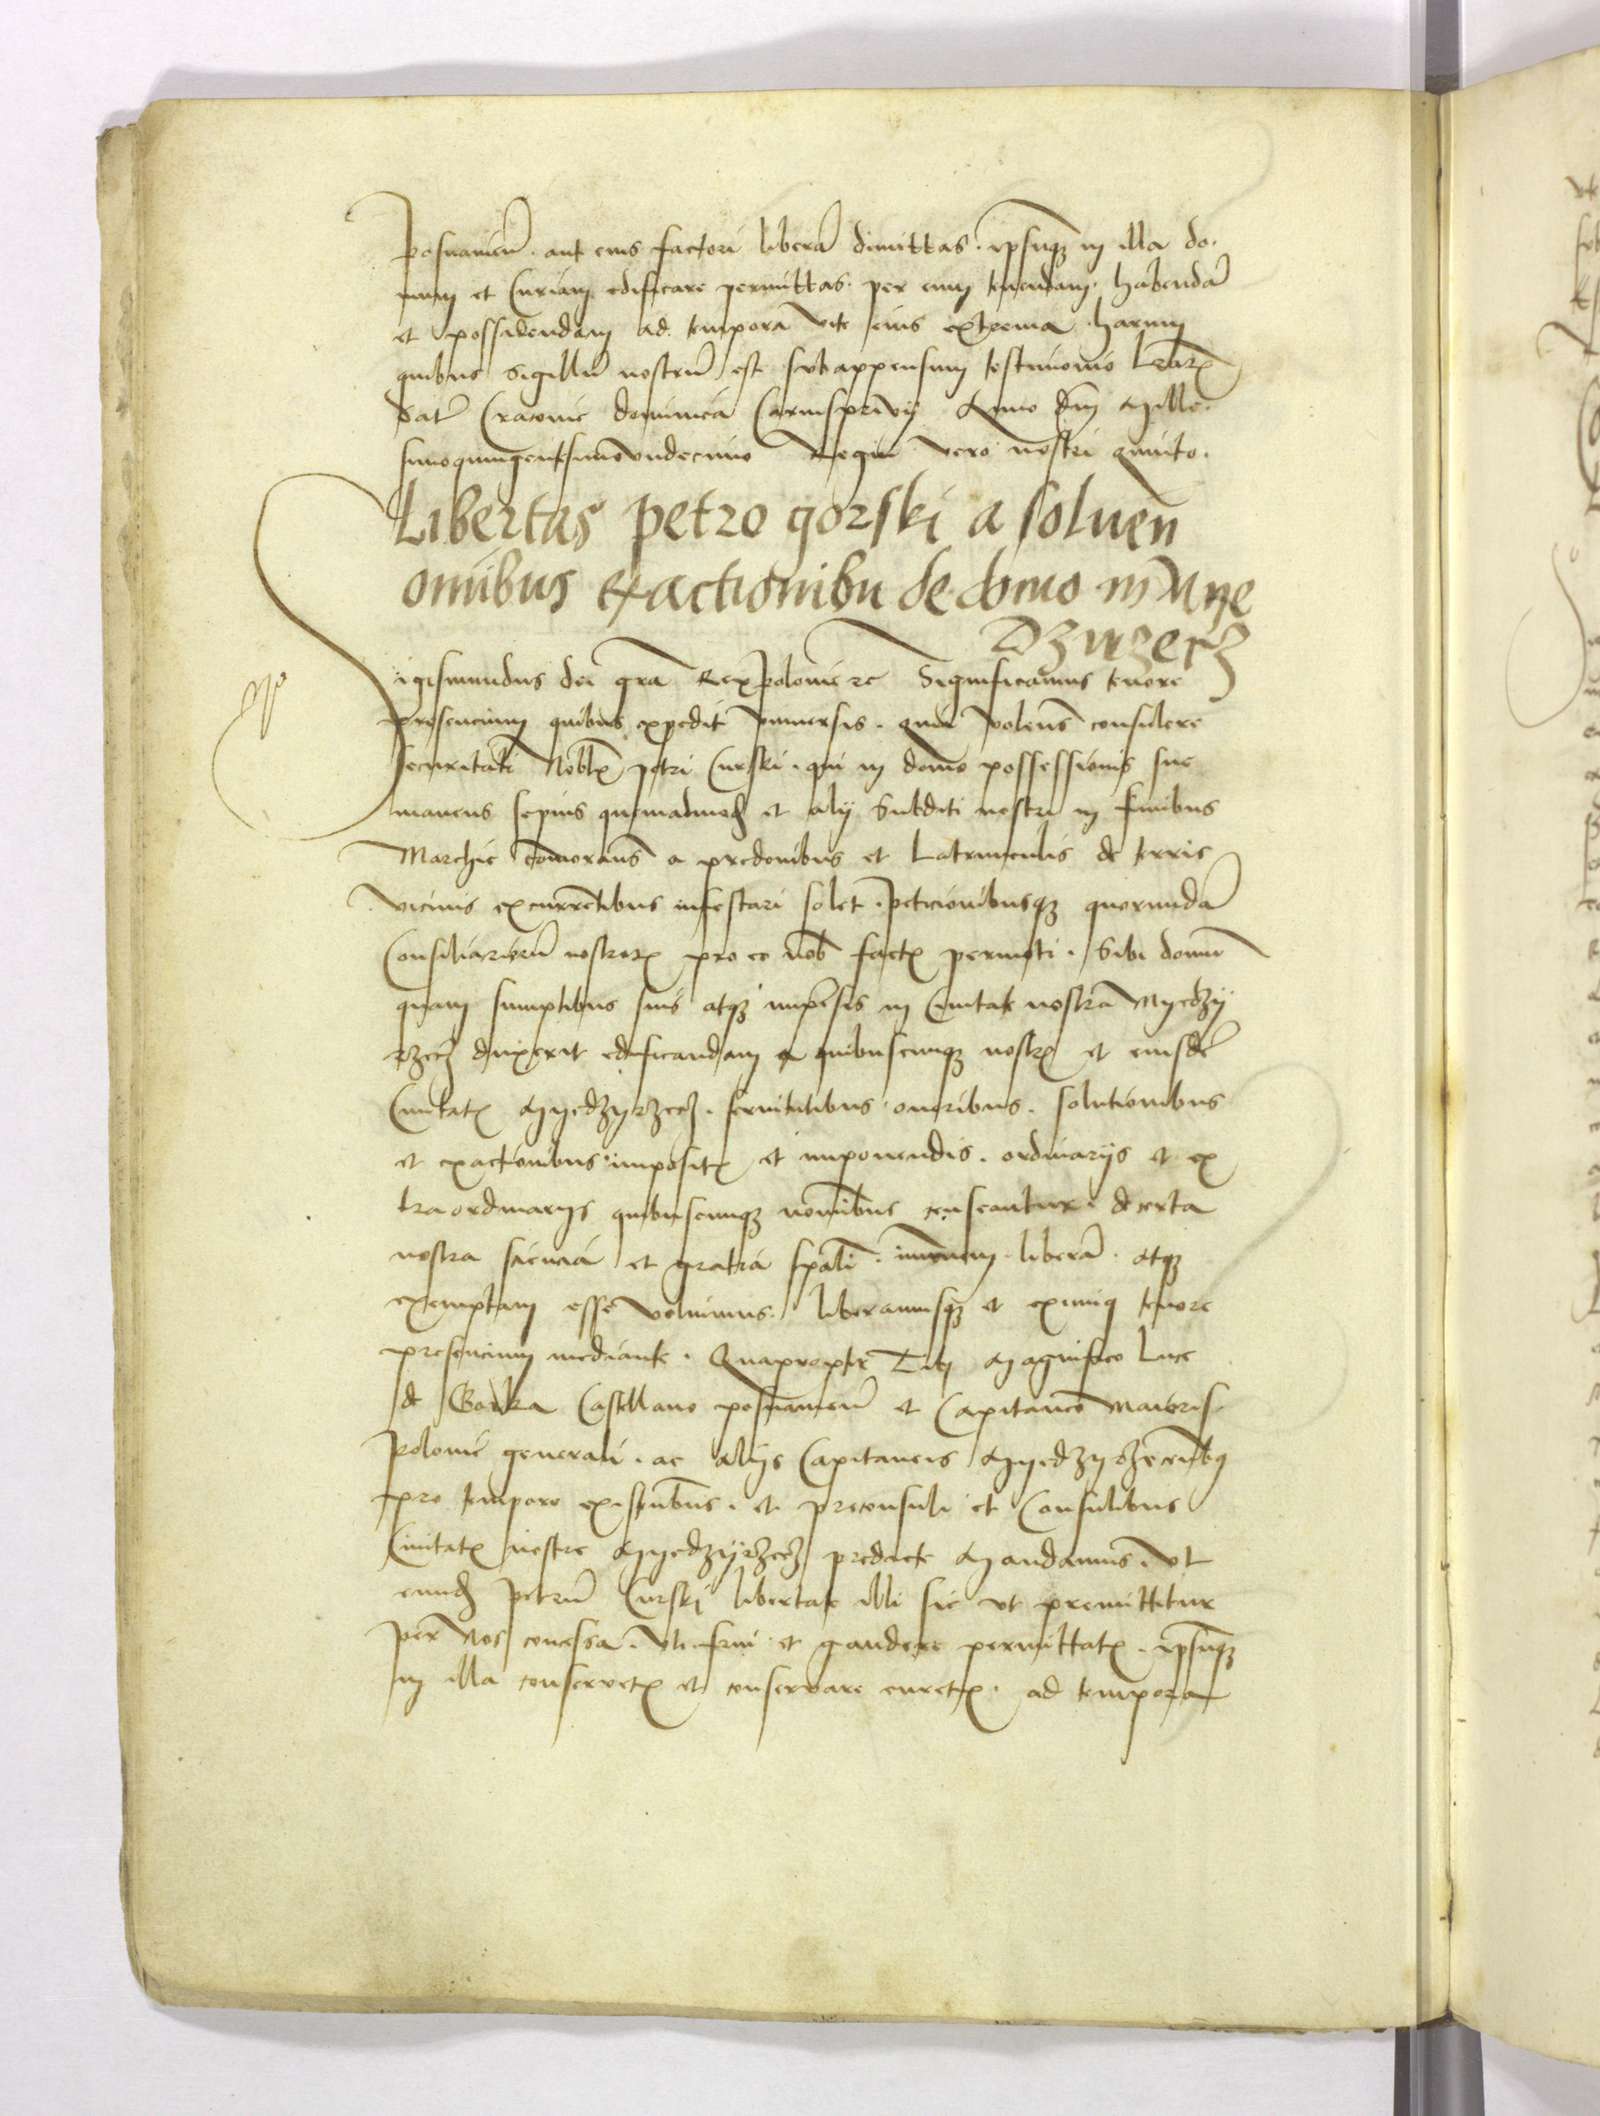 Posnanien̄. aut eius factori liberā dimittas. ipsūqꝫ in illa do-
mum et Curiam edificare permittas. per eum tenendam. habendā
et possidendam ad tempora vite eius extrema. harum
quibus Sigillū nostrū est subappensum testimonio lrārꝫ
Datū Cracovie dominica Carnisprivij Anno dnī Mille-
simoquingentesimoundecimo Regni vero nostri quinto.
Libertas petro gorski a soluen̄
omībus exactionibu de domo in Mye
Dzyrzecz
Sigismundus dei grā Rex Polonie ꝛc Significamus tenore
presencium quibus expedit vniuersis. quia volens̄ consulere
securitati Nobilꝫ petri Curski. qui in domo possessionis sue
manens sepius quemadmodꝫ et alij Subditi nostri in finibus
Marchie cōmorans̄ a predonibus et Latrunculis de terris
vicinis excurrētibus infestari solet. Peticionibusqꝫ quorundā
Consiliariorū nostrorꝫ pro eo nob̄ factꝫ permoti. Sibi domū
quam sumptibus suis atqꝫ impēsis in Ciuitate nostra Myedzy
rzecz duxerit edificandam a quibuscumqꝫ nostrꝫ et eiusdē
Ciuitatꝫ Myedzyrzecz. seruitutibus oneribus. solutionibus
et exactionibus impositꝫ et imponendis. ordinarijs et ex
traordinarijs quibuscumqꝫ nomībus censeantur. de certa
nostra sciencia et gratia spāli. immunem. liberā. atqꝫ
exemptam esse volumus. liberamusqꝫ et eximimꝰ tenore
presencium mediante. Quapropter Tibi Magnifico Luce
de Gorka Castellano posnanien̄ et Capitaneo Maioris
Polonie generali. ac alijs Capitaneis Myedzyrzecen̄bꝫ
pro tempore existen̄bus. et preconsuli et Consulibus
Ciuitatꝫ nostre Myedzyrzecz predicte Mandamus. vt
eundꝫ petrū Curski libertate illi sic vt premittitur
per Nos concessa. vti frui et gaudere permittatꝫ. ipsūqꝫ
in illa conservetꝫ et conservare curetꝫ. ad tempora